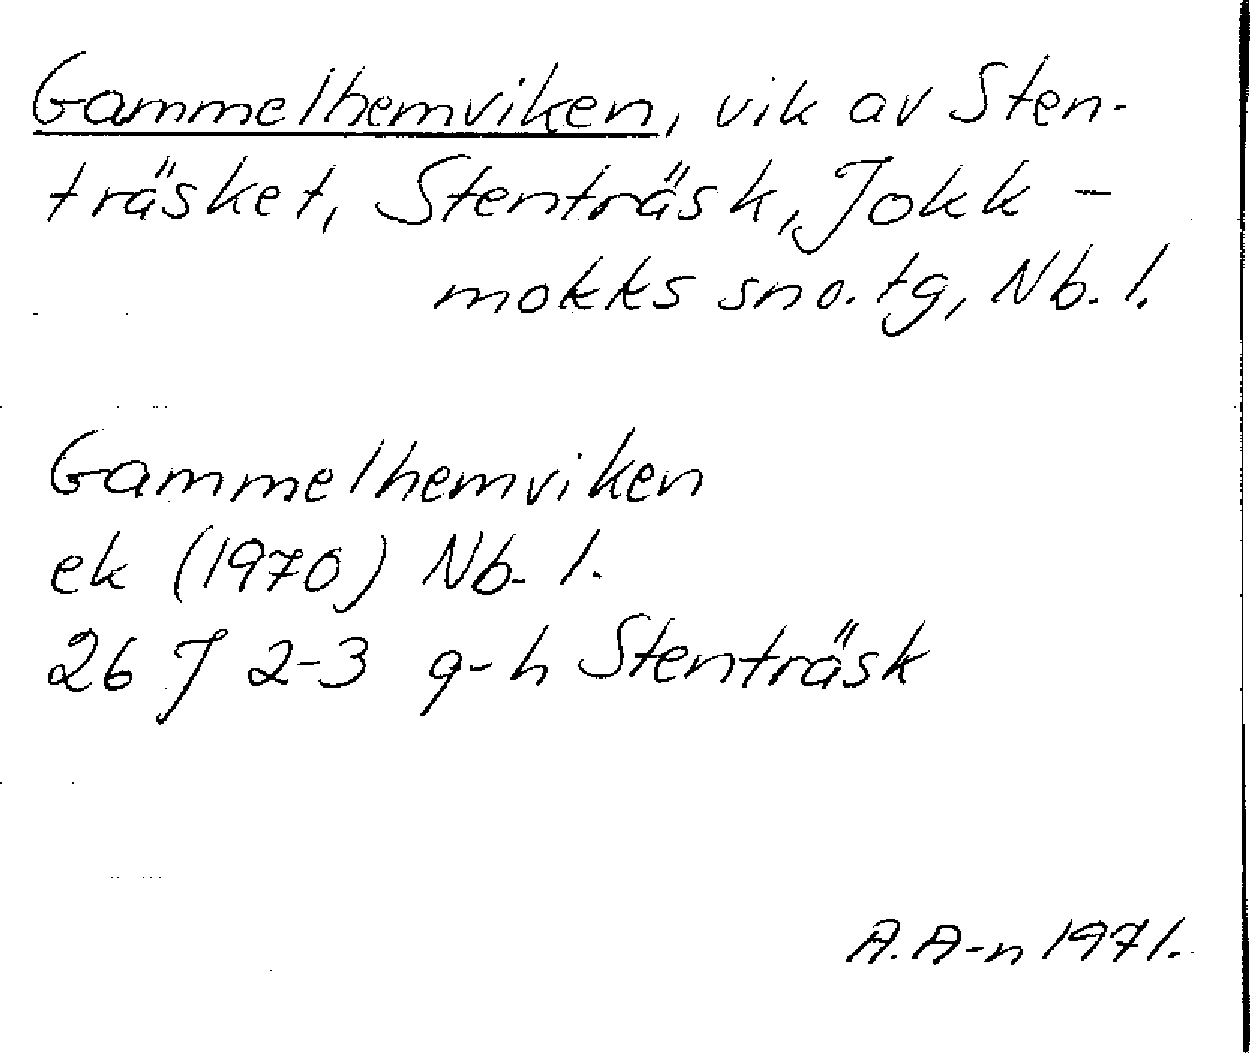 Gammelhemviken, vik av Sten-
träsket, Stenträsk, Jokk-
mokks sno. tg, Nb. l.
Gammelhemviken
ek (1970) Nb. l.
26 J 2-3 g-h Stenträsk
A. A-n 1971.